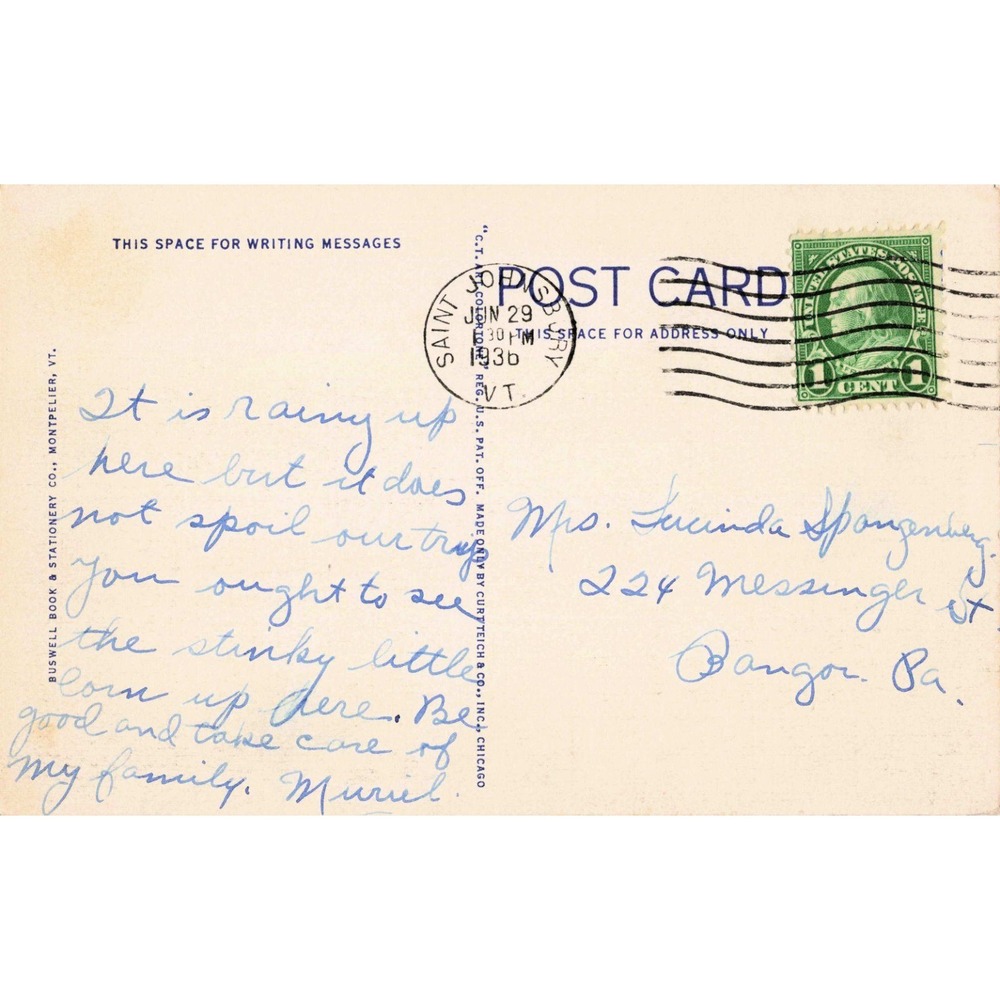 THIS SPACE FOR WRITING MESSAGES
BUSWELL BOOK & STATIONERY CO., MONTPELIER, VT.
It is rainy up
here but it does
not spoil our trip
You ought to see
the stinky little
corn up here. Be
good and take care of
my family. Muriel.
"C.T. ART-COLORTONE" REG. U.S. PAT. OFF. MADE ONLY BY CURT TEICH & CO., INC., CHICAGO
POST CARD
THIS SPACE FOR ADDRESS ONLY
SAINT JOHNSBURY
JUN 29
30 PM
1936
VT.
UNITED STATES POSTAGE
1 CENT 1
Mrs. Lucinda Spangenberg.
224 Messinger st
Bangor. Pa.